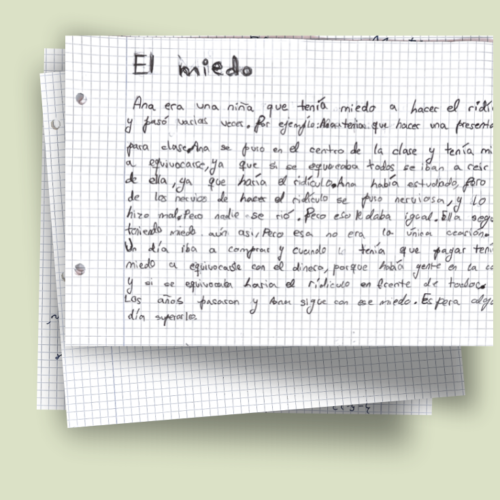 El miedo
Ana era una niña que tenía miedo a hacer el ridí
y pasó varias veces. Por ejemplo: Ana tenia que hacer una presenta
para clase. Ana se puso en el centro de la clase y tenía mi
a equivocarse, ya que si se equivocaba todos se iban a reir
de ella, ya que haría el ridículo. Ana había estudado, pero
de los nervios de hacer el ridículo se puso nerviosa, y lo
hizo mal. Pero nadie se rió. Pero eso le daba igual. Ella segu
teniendo miedo aún asi, Pero esa no era la única ocasión.
Un día iba a comprar y cuando le tenía que pagar tení
miedo a equivocarse con el dinero, porque había gente en la co
y si se equivocaba haria el ridículo en frente de todos.
Los años pasaron y Ana sigue con ese miedo. Espera algú
día superarlo.